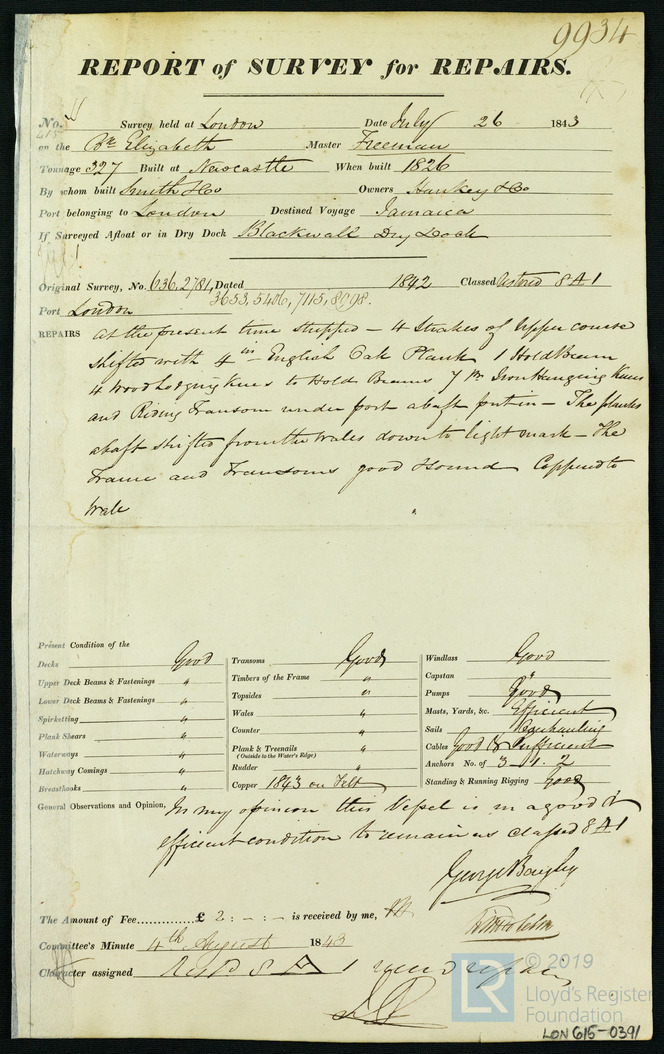 9934
REPORT of SURVEY for REPAIRS.
No. Survey held at London Date July 26 1843
615
on the Bk Elizabeth Master Freeman
Tonnage 327 Built at Newcastle When built 1826
By whom built Smith & Co Owners Hankey & Co
Port belonging to London Destined Voyage Jamaica
If Surveyed Afloat or in Dry Dock Blackwall Dry Dock
Original Survey, No. 636, 2781, Dated 1842 Classed Restored 8 A 1
3653, 5406, 7115, 8098.
Port London
REPAIRS At the present time stripped – 4 Strakes of Upper course
shifted with 4 in English Oak Plank 1 Hold Beam
4 Wood Lodging Knees to Hold Beams 7 pr Iron Hanging Knees
and Riding Transom under port abaft put in – The planks
abaft shifted from the Wales down to light mark – The
Frame and Transoms good & sound Coppered to
Wale
Present Condition of the
Decks Good
Upper Deck Beams & Fastenings "
Lower Deck Beams & Fastenings "
Spirketting "
Plank Shears "
Waterways "
Hatchway Comings "
Breasthooks "
Transoms Good
Timbers of the Frame "
Topsides "
Wales "
Counter "
Plank & Treenails "
(Outside to the Water's Edge)
Rudder "
Copper 1843 on Felt
Windlass Good
Capstan "
Pumps Good
Masts, Yards, &c. Efficient
Sails Overhauling
Cables Good & Sufficient
Anchors No. of 3 . 1 . 2
Standing & Running Rigging Good
General Observations and Opinion, In my opinion this Vessel is in a good &
efficient condition to remain as classed 8 A 1
George Bayley
The Amount of Fee.............£ 2 : - : - is received by me,
Committee's Minute 4th August 1843
Character assigned Rest'd 8 A 1
© 2019
LR
Lloyd's Register
Foundation
LON 615-0391